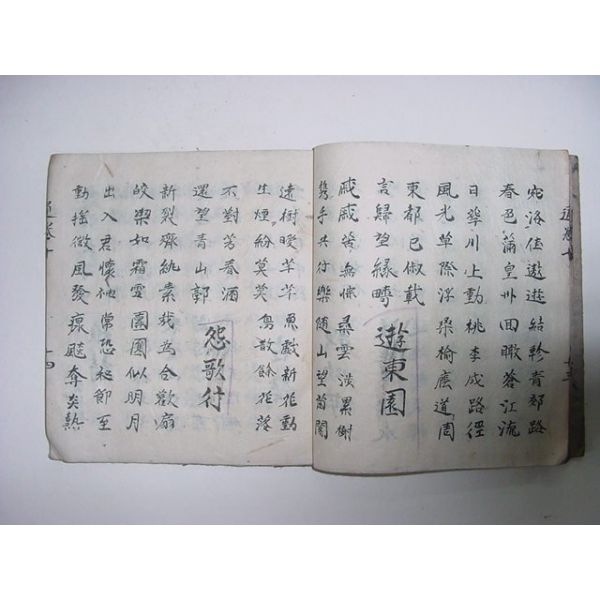 宛洛佳遨遊結軫青郊路
春色滿皇州回瞰蒼江流
日華川上動桃李成路徑
風光草際浮桑榆蔭道周
東都已俶載
言歸望緑疇
遊東園
戚戚苦無悰尋雲涉累榭
携手共行樂隨山望菌閣
遠樹曖芊芊魚戲新花動
生煙紛莫莫鳥散餘花落
不對芳春酒
還望青山郭
怨歌行
新裂齊紈素裁為合歡扇
皎潔如霜雪團圓似明月
出入君懷袖常恐秋節至
動搖微風發凉飈奪炎熱
十四